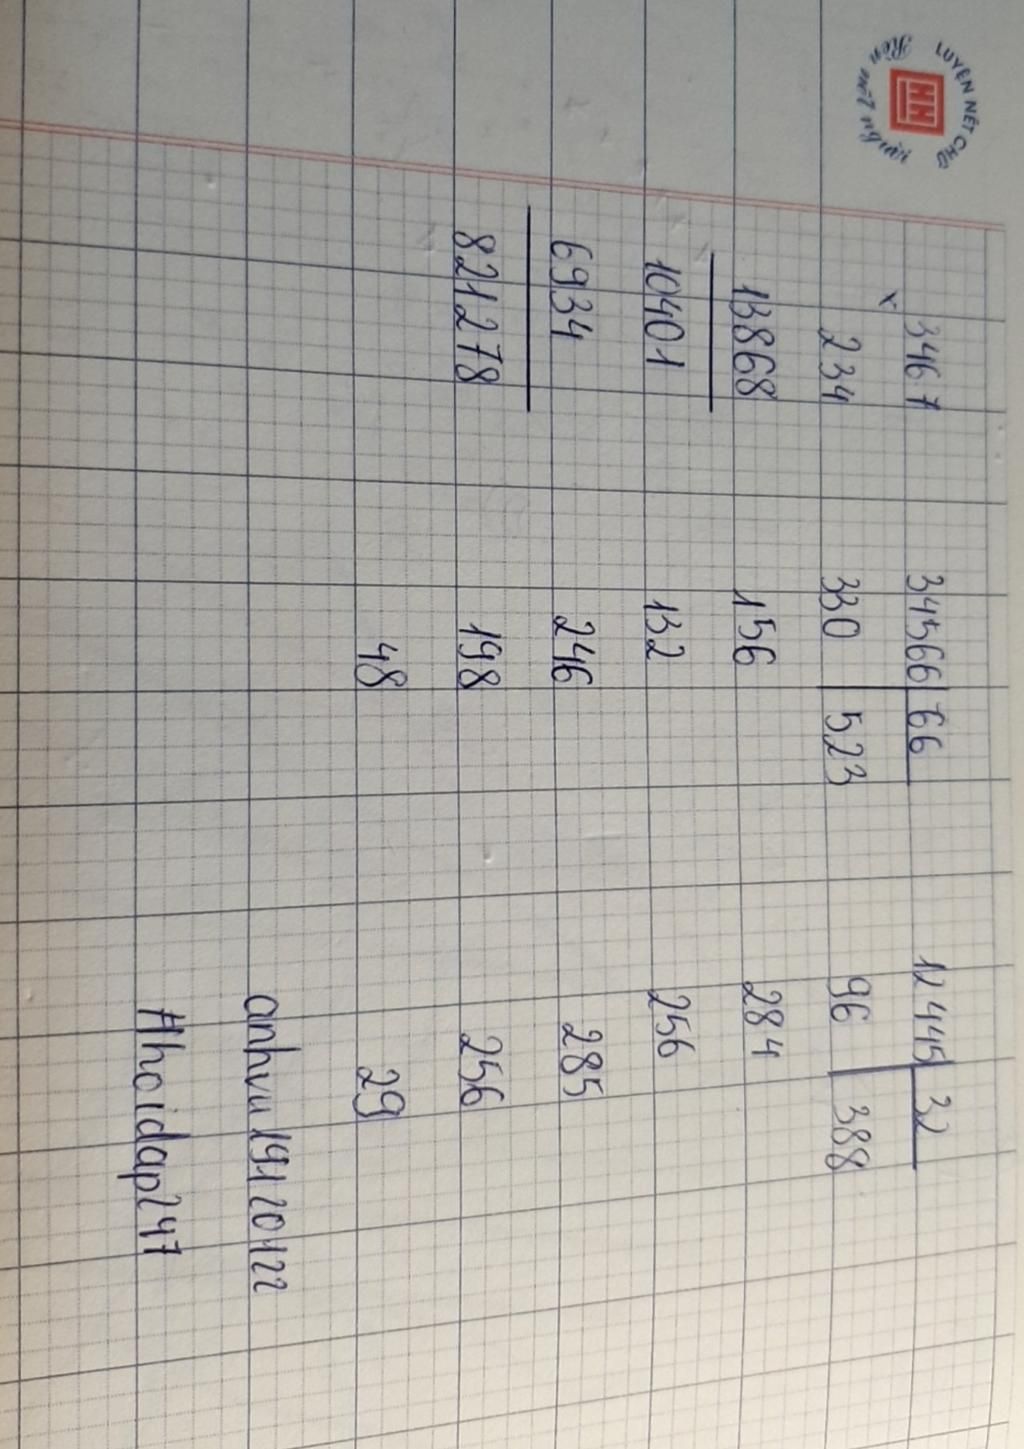 LUYỆN NÉT CHỮ
Rèn nết người
HH
3467
x
234
13868
10401
6934
821278
34566 66
330 523
156
132
246
198
48
12445 32
96 388
284
256
285
256
29
anhvu19120122
#hoidap247